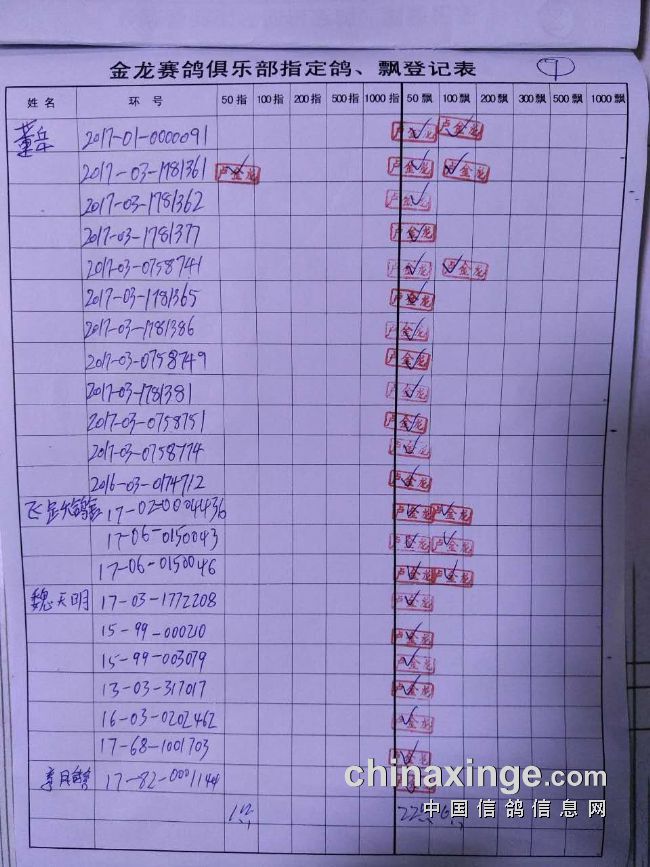 金龙赛鸽俱乐部指定鸽、飘登记表
姓名 环号 50指 100指 200指 500指 1000指 50飘 100飘 200飘 300飘 500飘 1000飘
2017-01-0000091 卢金龙 卢金龙
2017-03-1781361 卢金龙 卢金龙 卢金龙
2017-03-1781362 卢金龙
2017-03-1781377 卢金龙
2017-03-0758741 卢金龙 卢金龙
2017-03-1781365 卢金龙
2017-03-1781386 卢金龙
2017-03-0758749 卢金龙
2017-03-1781381 卢金龙
2017-03-0758751 卢金龙
2017-03-0758774 卢金龙
2016-03-0174712 卢金龙
17-02-0004436 卢金龙 卢金龙
17-06-0150043 卢金龙 卢金龙
17-06-0150046 卢金龙 卢金龙
魏天明 17-03-1772208 卢金龙
15-99-000210 卢金龙
15-99-003079 卢金龙
13-03-317017 卢金龙
16-03-0202462 卢金龙
17-68-1001703 卢金龙
17-82-0001144
chinaxinge.com
中国信鸽信息网